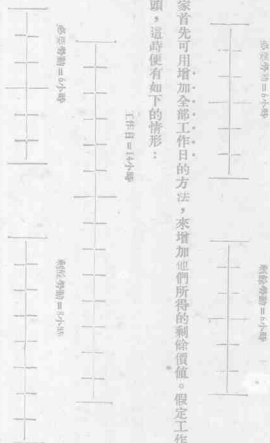 必要勞動=6小時
剩餘勞動=6小時
家首先可用增加全部工作日的方法，來增加他們所得的剩餘價值。假定工作
頭，這時便有如下的情形：
工作日=14小時
必要勞動=6小時
剩餘勞動=8小時